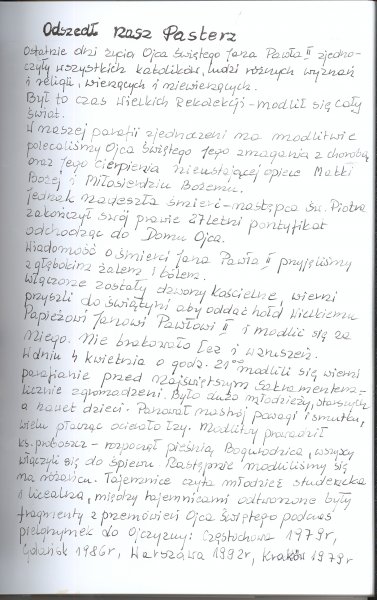 Odszedł nasz Pasterz
Ostatnie dni życia Ojca świętego Jana Pawła II zjedno-
czyły wszystkich katolików, ludzi różnych wyznań
i religii, wierzących i niewierzących.
Był to czas Wielkich Rekolekcji - modlił się cały
świat.
W naszej parafii zjednoczeni na modlitwie
polecaliśmy Ojca Świętego Jego zmagania z chorobą
oraz Jego cierpienia nieustającej opiece Matki
Bożej i Miłosierdziu Bożemu.
Jednak nadeszła śmierć - następca św. Piotra
zakończył swój prawie 27letni pontyfikat
odchodząc do Domu Ojca.
Wiadomość o śmierci Jana Pawła II przyjęliśmy
z głębokim żalem i bólem.
Włączone zostały dzwony kościelne, wierni
przyszli do świątyni aby oddać hołd Wielkiemu
Papieżowi Janowi Pawłowi II i modlić się za
Niego. Nie brakowało łez i wzruszeń.
W dniu 4 kwietnia o godz. 21⁰⁰ modlili się wierni
parafianie przed Najświętszym Sakramentem -
licznie zgromadzeni. Było dużo młodzieży, starszych
a nawet dzieci. Panował nastrój powagi i smutku,
wielu płacząc ocierało łzy. Modlitwy prowadził
ks. proboszcz - rozpoczął pieśnią Bogurodzica, wszyscy
włączyli się do śpiewu. Następnie modliliśmy się
na różańcu. Tajemnice czyta młodzież studencka
i licealna, między tajemnicami odtworzone były
fragmenty z przemówień Ojca Świętego podczas
pielgrzymek do Ojczyzny: Częstochowa 1979r,
Gdańsk 1986r, Warszawa 1992r, Kraków 1979r